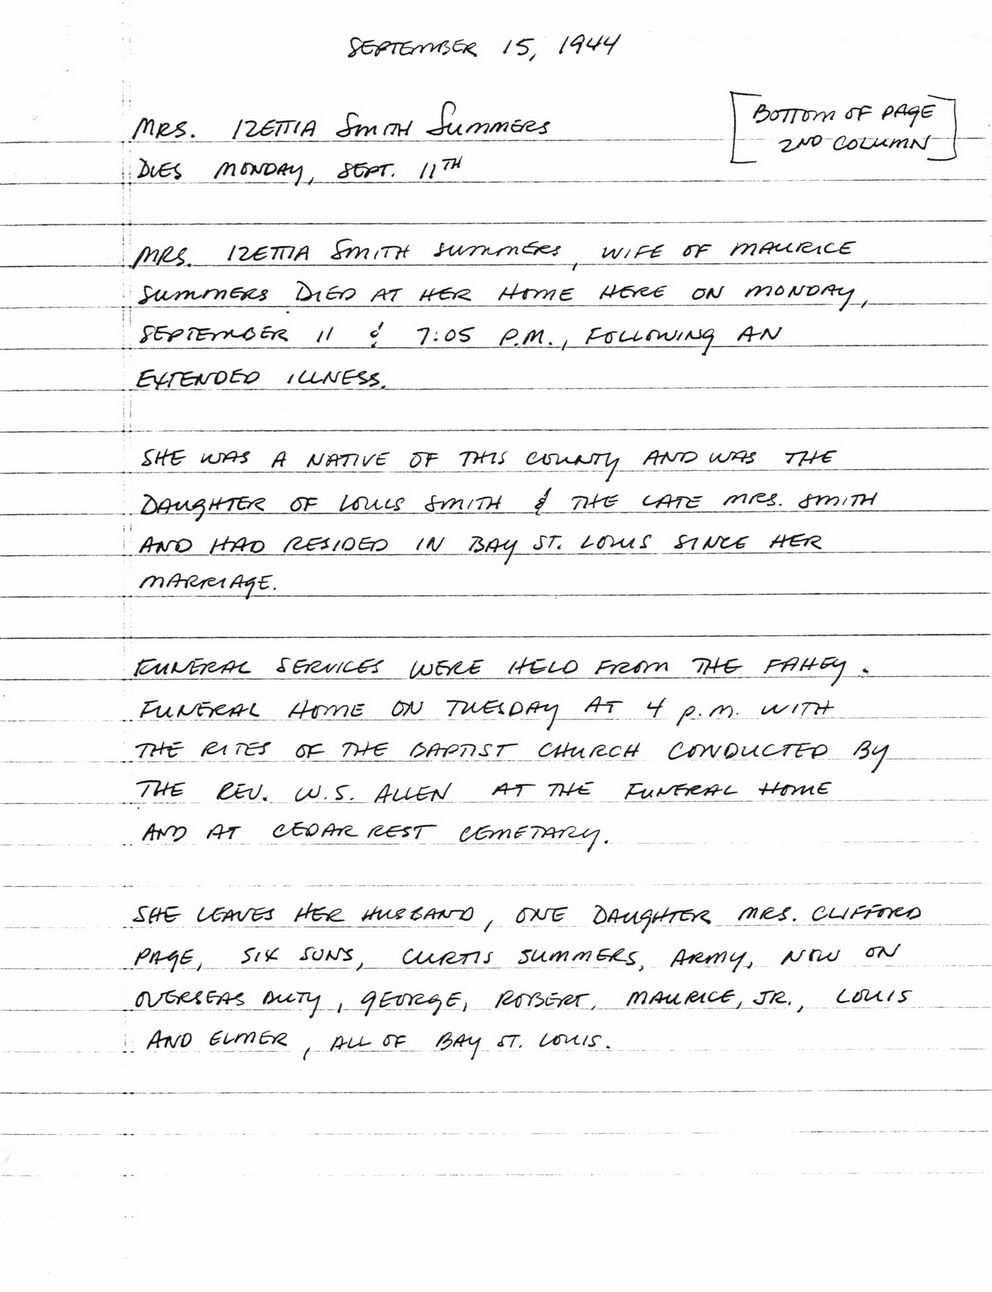 SEPTEMBER 15, 1944
[BOTTOM OF PAGE
2ND COLUMN]
MRS. IZETTIA SMITH SUMMERS
DIES MONDAY, SEPT. 11TH
MRS. IZETTIA SMITH SUMMERS, WIFE OF MAURICE
SUMMERS DIED AT HER HOME HERE ON MONDAY,
SEPTEMBER 11 & 7:05 P.M., FOLLOWING AN
EXTENDED ILLNESS.
SHE WAS A NATIVE OF THIS COUNTY AND WAS THE
DAUGHTER OF LOUIS SMITH & THE LATE MRS. SMITH
AND HAD RESIDED IN BAY ST. LOUIS SINCE HER
MARRIAGE.
FUNERAL SERVICES WERE HELD FROM THE FAHEY.
FUNERAL HOME ON TUESDAY AT 4 P.M. WITH
THE RITES OF THE BAPTIST CHURCH CONDUCTED BY
THE REV. W.S. ALLEN AT THE FUNERAL HOME
AND AT CEDAR REST CEMETARY.
SHE LEAVES HER HUSBAND, ONE DAUGHTER MRS. CLIFFORD
PAGE, SIX SONS, CURTIS SUMMERS, ARMY, NOW ON
OVERSEAS DUTY, GEORGE, ROBERT, MAURICE, JR., LOUIS
AND ELMER, ALL OF BAY ST. LOUIS.